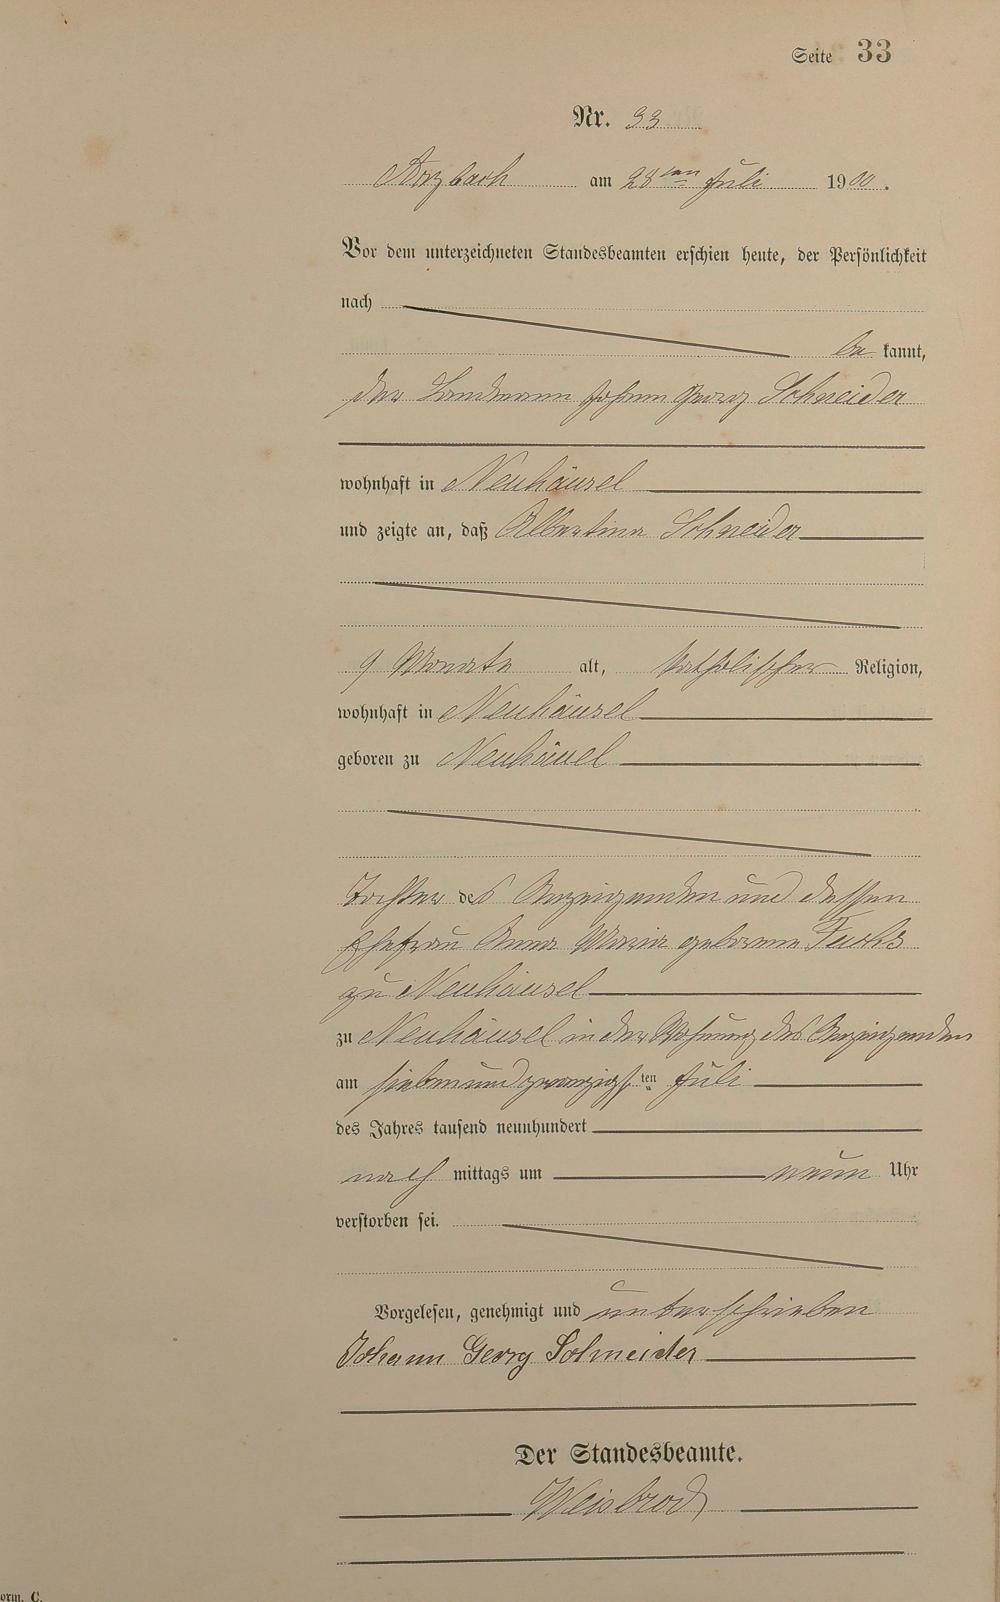 Seite 33
Nr. 33
Arzbach am 28ten Juli 1900.
Vor dem unterzeichneten Standesbeamten erschien heute, der Persönlichkeit
nach
be kannt,
der Landmann Johann Georg Schneider
wohnhaft in Neuhäusel
und zeigte an, daß Albertina Schneider
9 Monate alt, katholischer Religion,
wohnhaft in Neuhäusel
geboren zu Neuhäuel
Tochter des Anzeigenden und dessen
Ehefrau Anna Maria geborene Fuchs
zu Neuhäusel
zu Neuhäusel in der Wohnung des Anzeigenden
am siebenundzwanzigsten Juli
des Jahres tausend neunhundert
nach mittags um neun Uhr
verstorben sei.
Vorgelesen, genehmigt und unterschrieben
Johann Georg Schneider
Der Standesbeamte.
Weisbrod
orm. C.